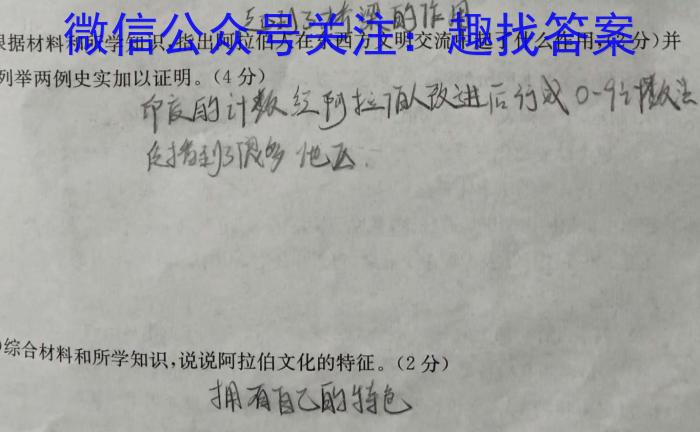 起到了桥梁的作用
微信公众号关注：趣找答案
根据材料和所学知识,指出阿拉伯人在东西方文明交流中起了什么作用,(2分)并
列举两例史实加以证明。(4分)
印度的计数经阿拉伯人改进后行成0-9计数法
传播到了很多地区.
综合材料和所学知识,说说阿拉伯文化的特征。(2分)
拥有自己的特色